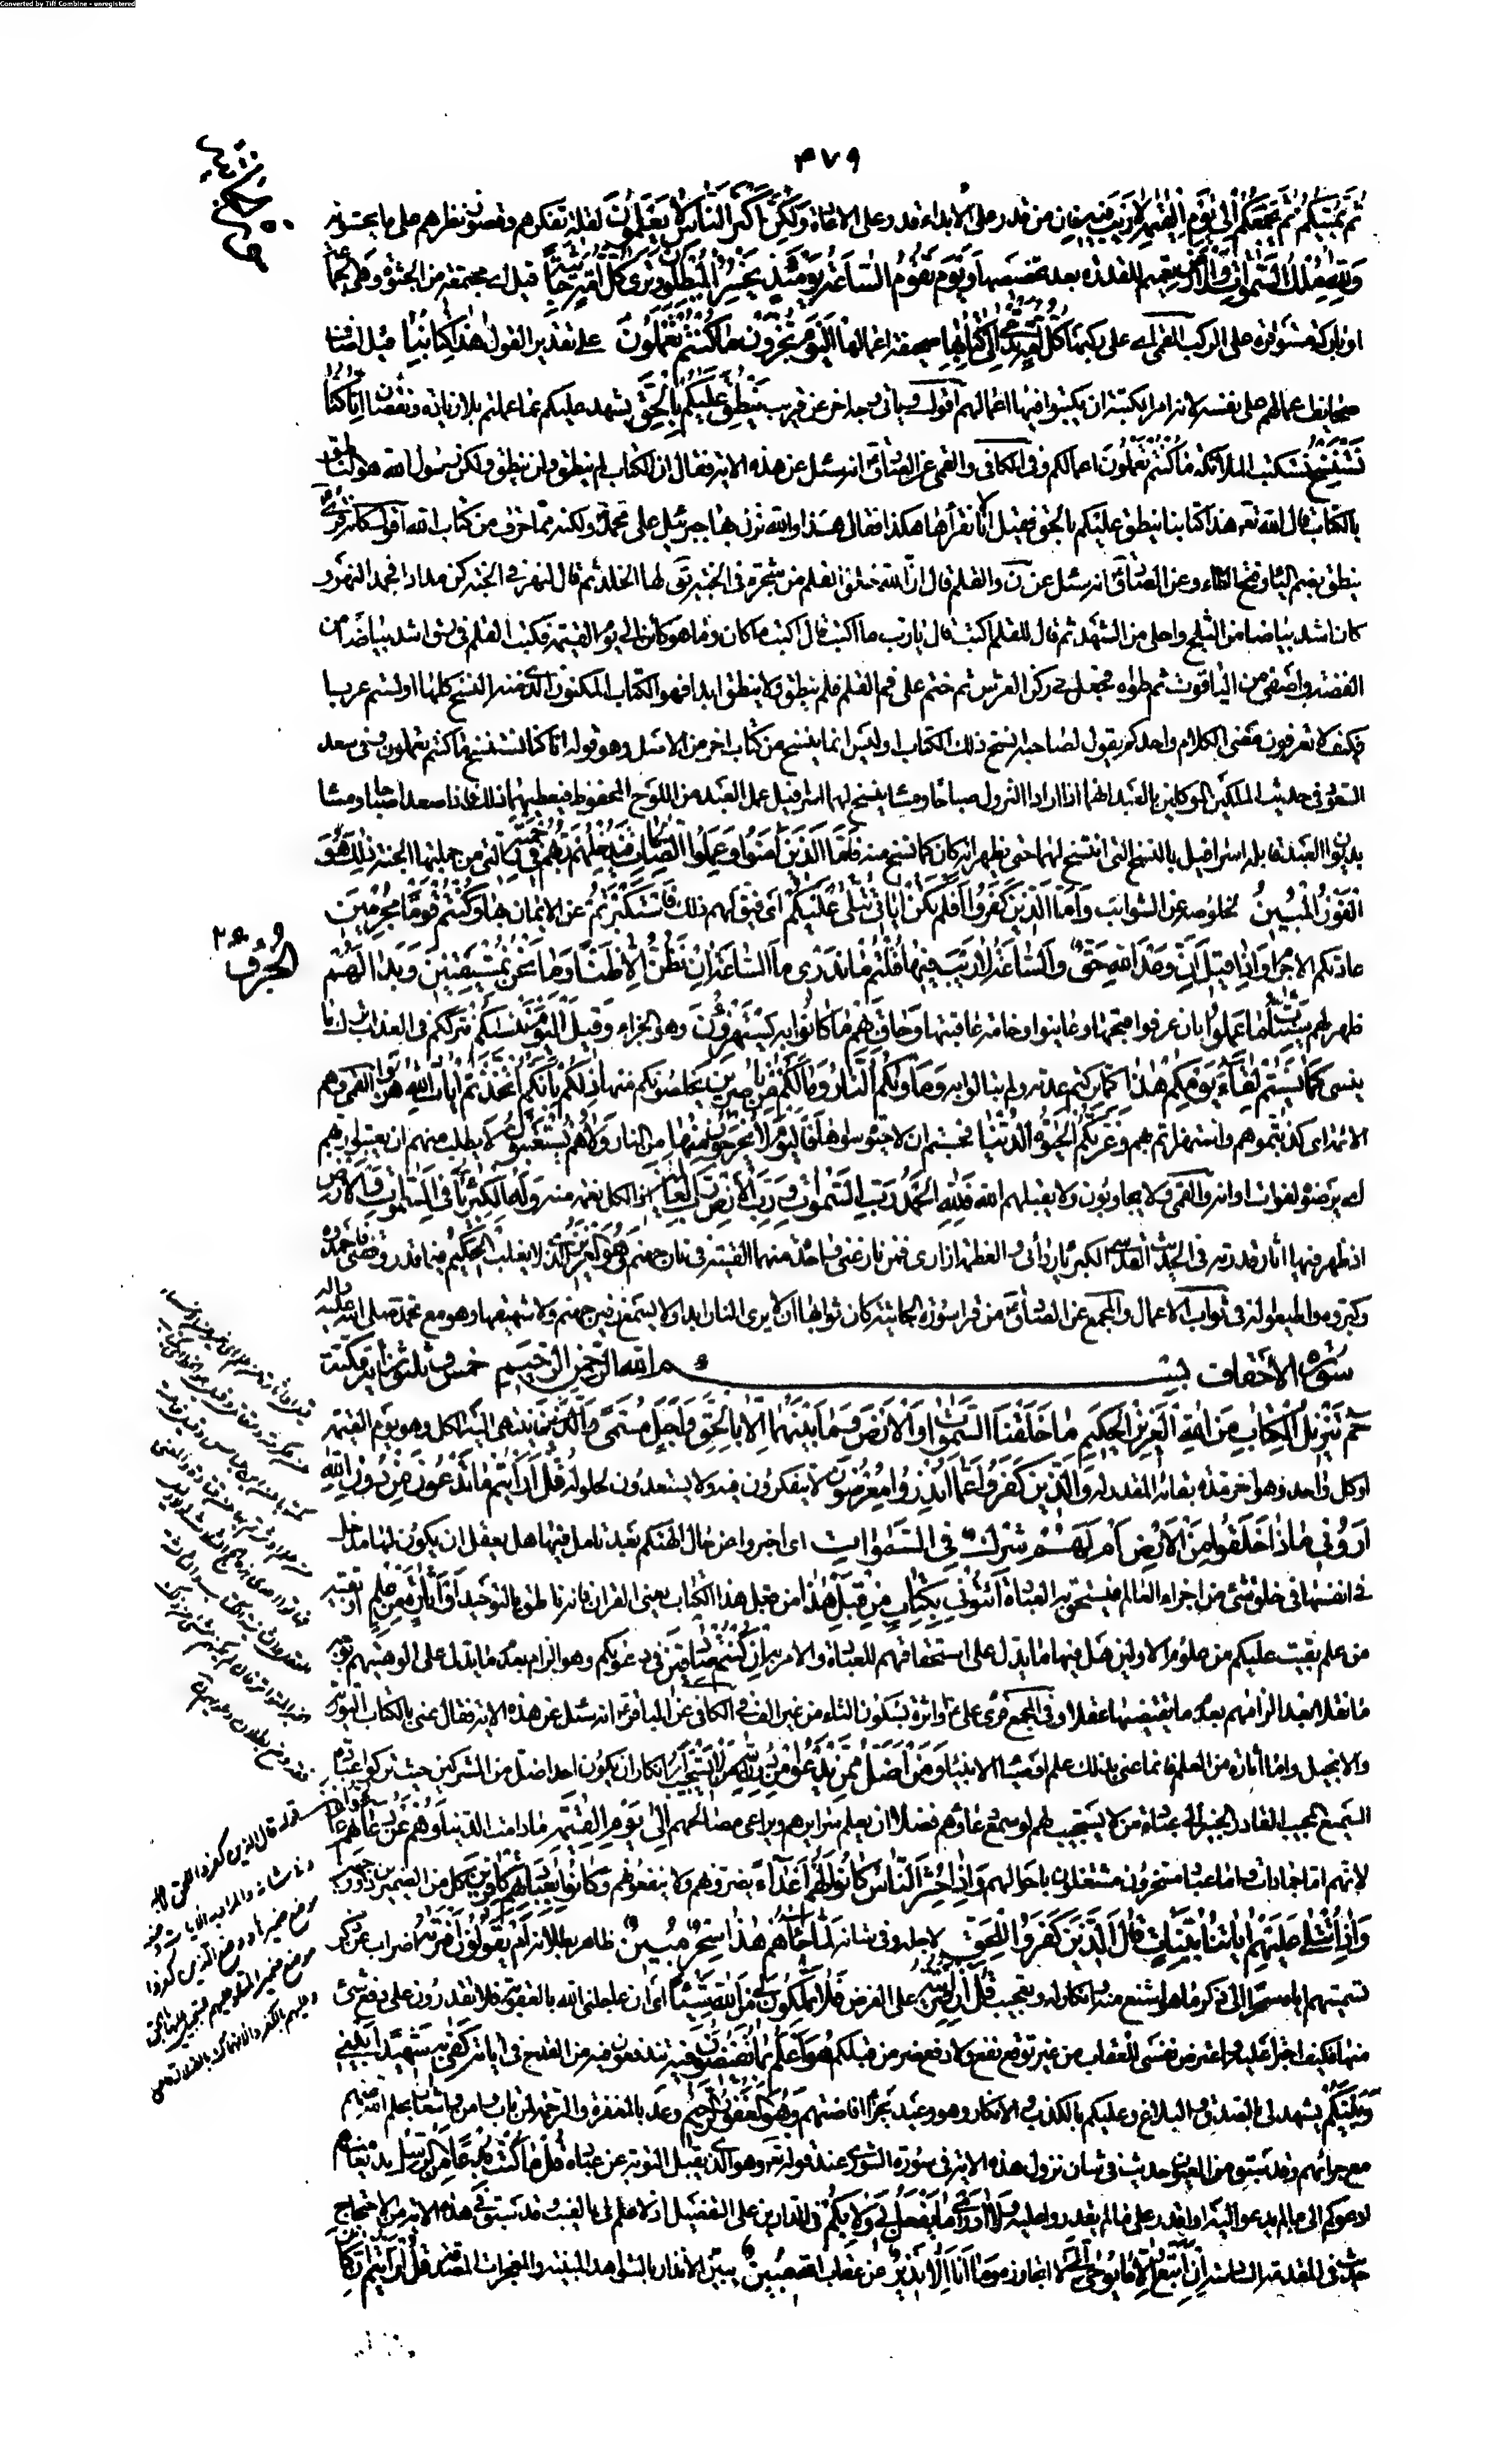 Converted by Tiff Combine - unregistered
٤٧٩
ثُمَّ يُمِيتُكُمْ ثُمَّ يَجْمَعُكُمْ إِلَى يَوْمِ الْقِيمَةِ لَا رَيْبَ فِيهِ فان من قدر على الابداء قدر على الاعادة وَلَكِنَّ أَكْثَرَ النَّاسِ لَا يَعْلَمُونَ لقلة تفكرهم وقصور نظرهم على ما يحسونه
وَلِلَّهِ مُلْكُ السَّمَوَاتِ وَالْأَرْضِ تعميم للقدرة بعد تخصيصها وَيَوْمَ تَقُومُ السَّاعَةُ يَوْمَئِذٍ يَخْسَرُ الْمُبْطِلُونَ وَتَرَى كُلَّ أُمَّةٍ جَاثِيَةً قيل اى مجتمعة من الجثوة وهى الجماعة
او باركة مستوفزة على الركب القمى اى على ركبها كُلُّ أُمَّةٍ تُدْعَى إِلَى كِتَابِهَا صحيفة اعمالها الْيَوْمَ تُجْزَوْنَ مَا كُنْتُمْ تَعْمَلُونَ على تقدير القول هَذَا كِتَابُنَا قيل اضاف
صحايف اعمالهم على نفسه لانه امر الكتبة ان يكتبوا فيها اعمالهم اقول وياتى وجه اخر عن قريب يَنْطِقُ عَلَيْكُمْ بِالْحَقِّ يشهد عليكم بما عملتم بلا زيادة ونقصان إِنَّا كُنَّا
نَسْتَنْسِخُ نستكتب الملائكة مَا كُنْتُمْ تَعْمَلُونَ اعمالكم وفى الكافى والقمى عن الصادق انه سئل عن هذه الاية فقال ان الكتاب لم ينطق ولن ينطق ولكن رسول الله هو الناطق
بالكتاب قال الله تعه هذا كتابنا ينطق عليكم بالحق فقيل انا لا نقرأها هكذا فقال هكذا والله نزل بها جبرئيل على محمد ولكنه مما حرف من كتاب الله اقول كانه قرئ
ينطق بضم الياء وفتح الطاء وعن الصادق انه سئل عن ن والقلم قال ان الله خلق القلم من شجرة فى الجنة يقال لها الخلد ثم قال لنهر فى الجنة كن مدادا فجمد النهر و
كان اشد بياضا من الثلج واحلى من الشهد ثم قال للقلم اكتب قال يا رب ما اكتب قال اكتب ما كان وما هو كائن الى يوم القيمة فكتب القلم فى رق اشد بياضا من
الفضة واصفى من الياقوت ثم طواه فجعله فى ركن العرش ثم ختم على فم القلم فلم ينطق ولا ينطق ابدا فهو الكتاب المكنون الذى منه النسخ كلها او لستم عربا
فكيف لا تعرفون معنى الكلام واحدكم يقول لصاحبه انسخ ذلك الكتاب او ليس انما ينسخ من كتاب اخر من الاصل وهو قوله انا كنا نستنسخ ما كنتم تعملون وفى سعد
السعود فى حديث الملكين الموكلين بالعبد انهما اذا ارادا النزول صباحا ومساء ينسخ لهما اسرافيل عمل العبد من اللوح المحفوظ فيعطيهما ذلك فاذا صعدا صباحا ومساء
بديوان العبد قابله اسرافيل بالنسخ التى انتسخ لهما حتى يظهر انه كان كما نسخ منه فَأَمَّا الَّذِينَ آمَنُوا وَعَمِلُوا الصَّالِحَاتِ فَيُدْخِلُهُمْ رَبُّهُمْ فِي رَحْمَتِهِ التى من جملتها الجنة ذَلِكَ هُوَ
الْفَوْزُ الْمُبِينُ لخلوصه عن الشوايب وَأَمَّا الَّذِينَ كَفَرُوا أَفَلَمْ تَكُنْ آيَاتِي تُتْلَى عَلَيْكُمْ اى فيق لهم ذلك فَاسْتَكْبَرْتُمْ عن الايمان بها وَكُنْتُمْ قَوْمًا مُجْرِمِينَ
عادتكم الاجرام وَإِذَا قِيلَ إِنَّ وَعْدَ اللَّهِ حَقٌّ وَالسَّاعَةُ لَا رَيْبَ فِيهَا قُلْتُمْ مَا نَدْرِي مَا السَّاعَةُ إِنْ نَظُنُّ إِلَّا ظَنًّا وَمَا نَحْنُ بِمُسْتَيْقِنِينَ وَبَدَا لَهُمْ
ظهر لهم سَيِّئَاتُ مَا عَمِلُوا بان عرفوا قبحها وعاينوا وخامة عاقبتها وَحَاقَ بِهِمْ مَا كَانُوا بِهِ يَسْتَهْزِؤُنَ وهو الجزاء وَقِيلَ الْيَوْمَ نَنْسَاكُمْ نترككم فى العذاب ترك ما
ينسى كَمَا نَسِيتُمْ لِقَاءَ يَوْمِكُمْ هَذَا كما تركتم عدته ولم تبالوا به وَمَأْوَيكُمُ النَّارُ وَمَا لَكُمْ مِنْ نَاصِرِينَ يخلصونكم منها ذَلِكُمْ بِأَنَّكُمُ اتَّخَذْتُمْ آيَاتِ اللَّهِ هُزُوًا القمى وهم
الائمة اى كذبتموهم واستهزأتم بهم وَغَرَّتْكُمُ الْحَيَوةُ الدُّنْيَا فحسبتم ان لا حيوة سواها فَالْيَوْمَ لَا يُخْرَجُونَ مِنْهَا من النار وَلَا هُمْ يُسْتَعْتَبُونَ لا يطلب منهم ان يعتبوا ربهم
اى يرضوه لفوات اوانه والقمى ولا يجاوبون ولا يقبلهم الله فَلِلَّهِ الْحَمْدُ رَبِّ السَّمَوَاتِ وَرَبِّ الْأَرْضِ رَبِّ الْعَالَمِينَ اذ الكل نعمة منه وَلَهُ الْكِبْرِيَاءُ فِي السَّمَوَاتِ وَالْأَرْضِ
اذ ظهر فيها اثار قدرته فى الحديث القدسى الكبرياء ردائى والعظمة ازارى فمن نازعنى واحدة منهما القيته فى نار جهنم وَهُوَ الْعَزِيزُ الذى لا يغلب الْحَكِيمُ فيما قدر وقضى فاحمدوه
وكبروه واطيعوا له فى ثواب الاعمال والمجمع عن الصادق من قرأ سورة الجاثية كان ثوابها ان لا يرى النار ابدا ولا يسمع زفير جهنم ولا شهيقها وهو مع محمد صلى الله عليه واله
سورة الاحقاف بسم الله الرحمن الرحيم خمس وثلثون اية مكية
حم تَنْزِيلُ الْكِتَابِ مِنَ اللَّهِ الْعَزِيزِ الْحَكِيمِ مَا خَلَقْنَا السَّمَوَاتِ وَالْأَرْضَ وَمَا بَيْنَهُمَا إِلَّا بِالْحَقِّ وَأَجَلٍ مُسَمًّى ينتهى اليه الكل وهو يوم القيمة
او كل واحد وهو اخر مدة بقائه المقدر له وَالَّذِينَ كَفَرُوا عَمَّا أُنْذِرُوا مُعْرِضُونَ لا يتفكرون فيه ولا يستعدون لحلوله قُلْ أَرَأَيْتُمْ مَا تَدْعُونَ مِنْ دُونِ اللَّهِ
أَرُونِي مَاذَا خَلَقُوا مِنَ الْأَرْضِ أَمْ لَهُمْ شِرْكٌ فِي السَّمَوَاتِ اى اخبرونى عن حال الهتكم بعد تامل فيها هل يعقل ان يكون لها مدخل
فى انفسها فى خلق شئ من اجزاء العالم فيستحق به العبادة ائْتُونِي بِكِتَابٍ مِنْ قَبْلِ هَذَا من قبل هذا الكتاب يعنى القران فانه ناطق بالتوحيد أَوْ أَثَارَةٍ مِنْ عِلْمٍ او بقية
من علم بقيت عليكم من علوم الاولين هل فيها ما يدل على استحقاقهم للعبادة والامر به إِنْ كُنْتُمْ صَادِقِينَ فى دعويكم وهو الزام بعدم ما يدل على الوهيتهم بوجه
ما نقلا بعد الزامهم بعدم ما يقتضيها عقلا وفى المجمع قرئ على ع او اثرة بسكون الثاء من غير الف وفى الكافى عن الباقر انه سئل عن هذه الاية فقال عنى بالكتاب التورية
والانجيل واما اثارة من العلم فانما عنى بذلك علم اوصياء الانبياء وَمَنْ أَضَلُّ مِمَّنْ يَدْعُو مِنْ دُونِ اللَّهِ مَنْ لَا يَسْتَجِيبُ لَهُ انكار ان يكون احد اضل من المشركين حيث تركوا عبادة
السميع المجيب القادر الخبير الى عبادة من لا يستجيب لهم لو سمع دعاؤهم فضلا ان يعلم سرايرهم ويراعى مصالحهم إِلَى يَوْمِ الْقِيمَةِ ما دامت الدنيا وَهُمْ عَنْ دُعَائِهِمْ غَافِلُونَ
لانهم اما جمادات واما عباد مسخرون مشتغلون باحوالهم وَإِذَا حُشِرَ النَّاسُ كَانُوا لَهُمْ أَعْدَاءً يضرونهم ولا ينفعونهم وَكَانُوا بِعِبَادَتِهِمْ كَافِرِينَ كل من الضميرين ذو وجهين
وَإِذَا تُتْلَى عَلَيْهِمْ آيَاتُنَا بَيِّنَاتٍ قَالَ الَّذِينَ كَفَرُوا لِلْحَقِّ لاجله وفى شانه لَمَّا جَاءَهُمْ هَذَا سِحْرٌ مُبِينٌ ظاهر بطلانه أَمْ يَقُولُونَ افْتَرَاهُ اضراب عن ذكر
تسميتهم اياه سحرا الى ذكر ما هو اشنع منه وانكار له وتعجيب قُلْ إِنِ افْتَرَيْتُهُ على الفرض فَلَا تَمْلِكُونَ لِي مِنَ اللَّهِ شَيْئًا اى ان عاجلنى الله بالعقوبة فلا تقدرون على دفع شئ
منها فكيف اجترأ عليه واعرض نفسى للعقاب من غير توقع نفع ولا دفع ضر من قبلكم هُوَ أَعْلَمُ بِمَا تُفِيضُونَ فِيهِ تندفعون فيه من القدح فى اياته كَفَى بِهِ شَهِيدًا بَيْنِي
وَبَيْنَكُمْ يشهد لى بالصدق والبلاغ وعليكم بالكذب والانكار وهو وعيد بجزاء افاضتهم وَهُوَ الْغَفُورُ الرَّحِيمُ وعد بالمغفرة والرحمة لمن تاب وامن واشعار بحلم الله عنهم
مع جرائتهم وقد سبق من العيون حديث فى شان نزول هذه الاية فى سورة الشورى عند قوله تعه وهو الذى يقبل التوبة عن عباده قُلْ مَا كُنْتُ بِدْعًا مِنَ الرُّسُلِ بديعا منهم
ادعوكم الى ما لم يدعوا اليه او اقدر على ما لم يقدروا عليه وَمَا أَدْرِي مَا يُفْعَلُ بِي وَلَا بِكُمْ فى الدارين على التفصيل اذ لا علم لى بالغيب وقد سبق فى هذه الاية من الاحتجاج
حديث فى المقدمة السادسة إِنْ أَتَّبِعُ إِلَّا مَا يُوحَى إِلَيَّ لا اتجاوزه وَمَا أَنَا إِلَّا نَذِيرٌ من عقاب الله مُبِينٌ يبين الانذار بالشواهد المبينة والمعجزات المصدقة قُلْ أَرَأَيْتُمْ إِنْ كَانَ
الجزو ٢٦
قوله قال الذين كفروا للحق لاجله